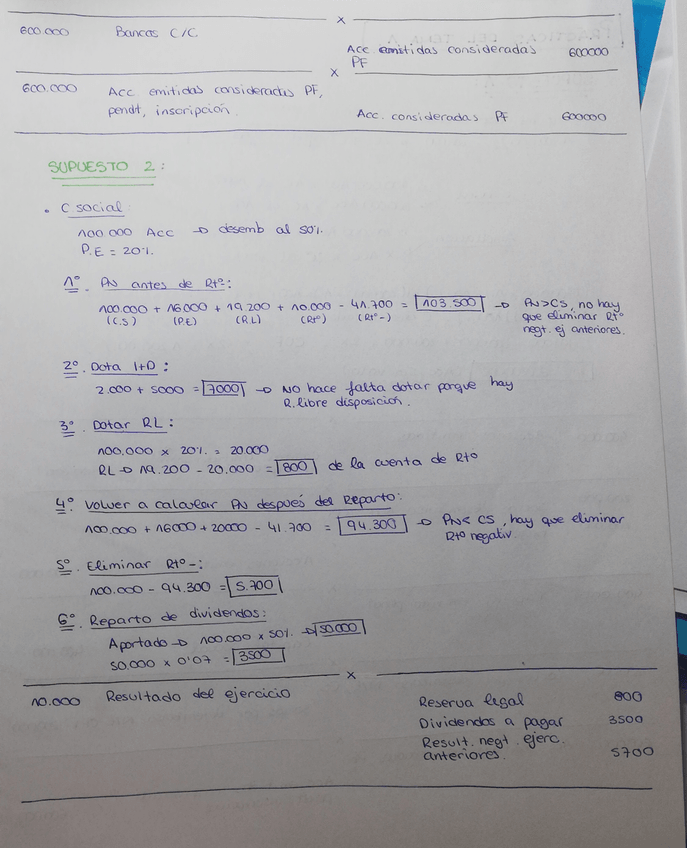 x
600.000 Bancos C/C
Acc. emitidas consideradas 600000
PF
x
600.000 Acc emitidas consideradas PF,
pendt, inscripción.
Acc. consideradas PF 600000
SUPUESTO 2:
• C social:
100.000 Acc → desemb al 50%.
P.E = 20%.
1º. PN antes de Rtº:
100.000 + 16000 + 19.200 + 10.000 - 41.700 = 103.500 → PN>CS, no hay
(C.S) (P.E) (R.L) (Rtº) (Rtº-) que eliminar Rtº
negt. ej anteriores.
2º. Dota I+D:
2.000 + 5000 = 7000 → NO hace falta dotar porque hay
R. libre disposición.
3º. Dotar RL:
100.000 x 20% = 20.000
RL → 19.200 - 20.000 = 800 de la cuenta de Rtº
4º. Volver a calcular PN después del Reparto:
100.000 + 16000 + 20000 - 41.700 = 94.300 → PN< CS, hay que eliminar
Rtº negativ.
5º. Eliminar Rtº-:
100.000 - 94.300 = 5.700
6º. Reparto de dividendos:
Aportado → 100.000 x 50% → 50.000
50.000 x 0'07 = 3500
x
10.000 Resultado del ejercicio
Reserva legal 800
Dividendos a pagar 3500
Result. negt. ejerc.
anteriores. 5700